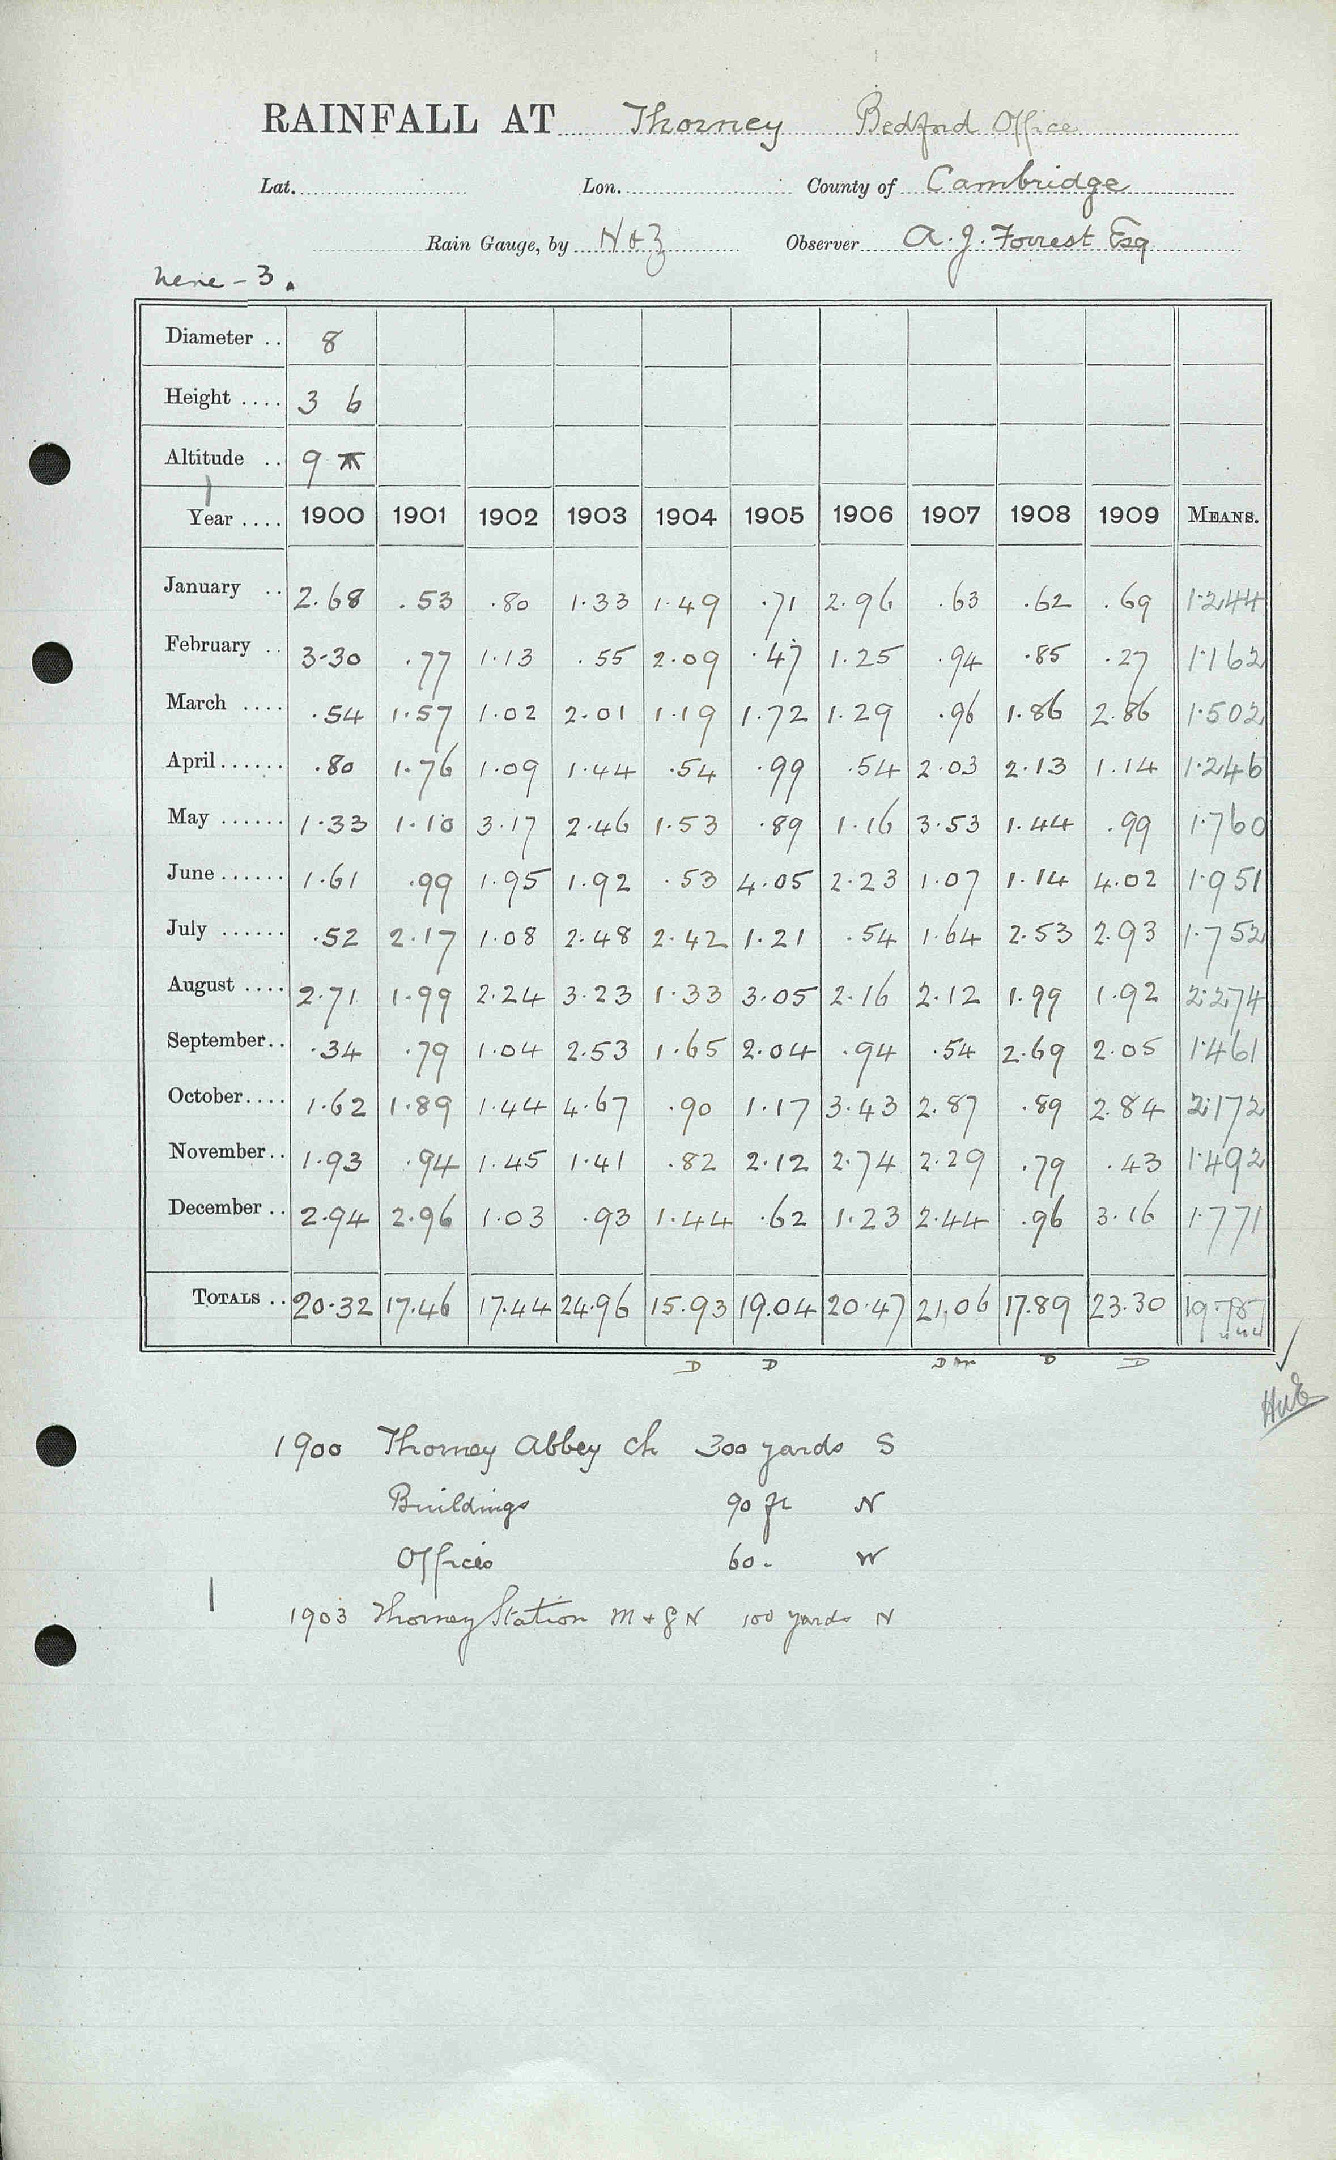 RAINFALL AT Thorney Bedford Office
Lat. Lon. County of Cambridge
Rain Gauge, by N & Z Observer A. J. Forrest Esq
Nene - 3.
Diameter .. 8
Height .... 3 6
Altitude .. 9
Year .... 1900 1901 1902 1903 1904 1905 1906 1907 1908 1909 MEANS.
January .. 2.68 .53 .80 1.33 1.49 .71 2.96 .63 .62 .69 1.244
February .. 3.30 .77 1.13 .55 2.09 .47 1.25 .94 .85 .27 1.162
March .... .54 1.57 1.02 2.01 1.19 1.72 1.29 .96 1.86 2.86 1.502
April ...... .80 1.76 1.09 1.44 .54 .99 .54 2.03 2.13 1.14 1.246
May ...... 1.33 1.10 3.17 2.46 1.53 .89 1.16 3.53 1.44 .99 1.760
June ...... 1.61 .99 1.95 1.92 .53 4.05 2.23 1.07 1.14 4.02 1.951
July ...... .52 2.17 1.08 2.48 2.42 1.21 .54 1.64 2.53 2.93 1.752
August .... 2.71 1.99 2.24 3.23 1.33 3.05 2.16 2.12 1.99 1.92 2.274
September.. .34 .79 1.04 2.53 1.65 2.04 .94 .54 2.69 2.05 1.461
October.... 1.62 1.89 1.44 4.67 .90 1.17 3.43 2.87 .89 2.84 2.172
November.. 1.93 .94 1.45 1.41 .82 2.12 2.74 2.29 .79 .43 1.492
December .. 2.94 2.96 1.03 .93 1.44 .62 1.23 2.44 .96 3.16 1.771
TOTALS .. 20.32 17.46 17.44 24.96 15.93 19.04 20.47 21.06 17.89 23.30 19.787
D D D D D
1900 Thorney Abbey Ch 300 yards S
Buildings 90 ft N
Offices 60 - W
1903 Thorney Station M & G N 100 yards N